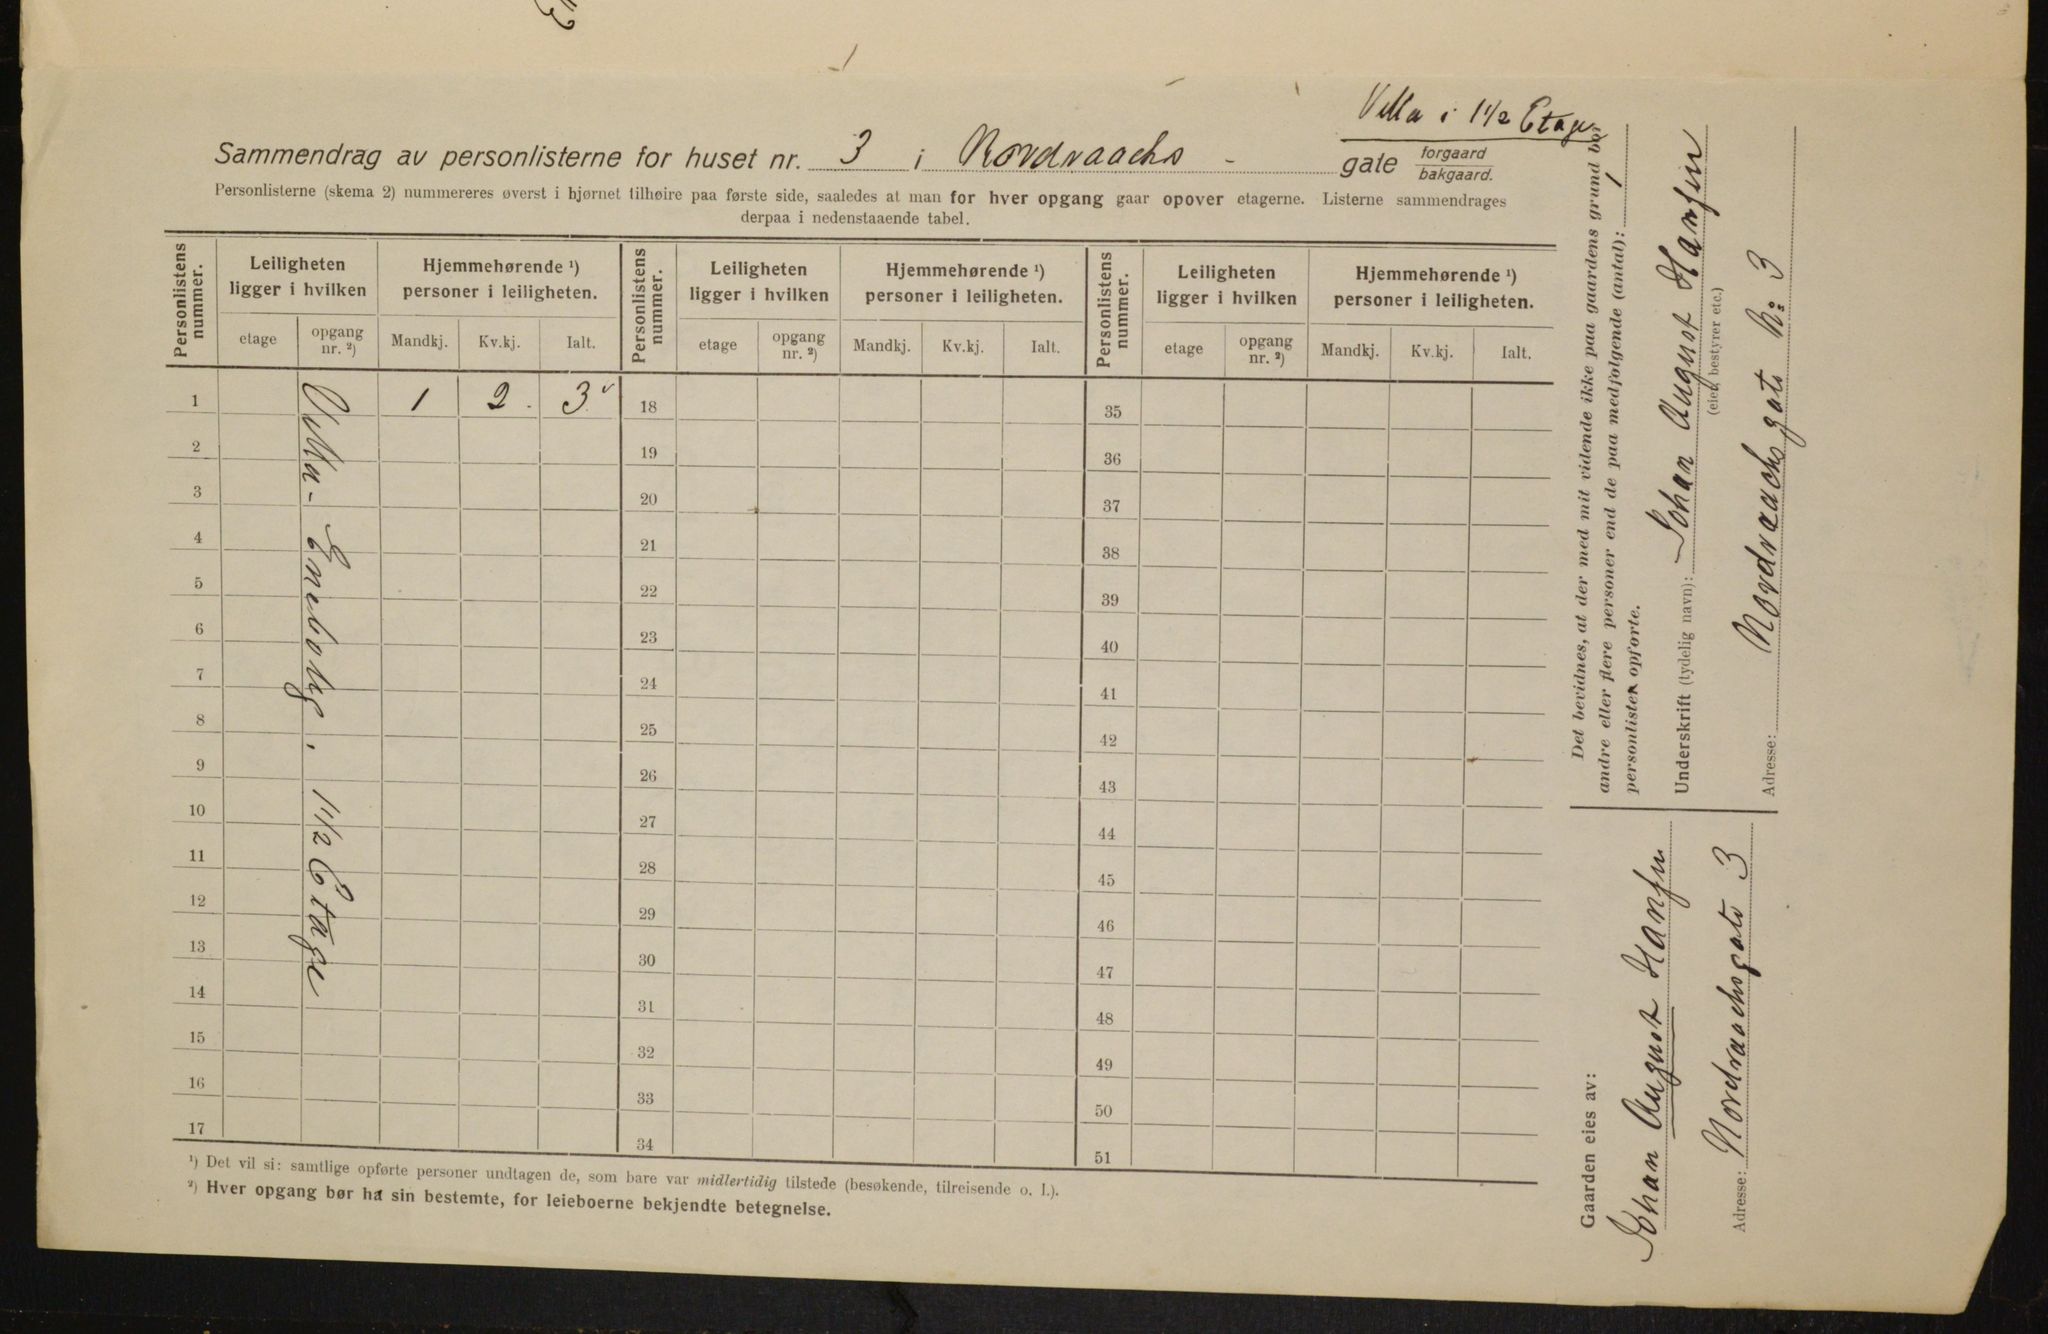 Villa i 1 1/2 Etage
Sammendrag av personlisterne for huset nr. 3 i Nordraachs - gate forgaard bakgaard.
Personlisterne (skema 2) nummereres øverst i hjørnet tilhøire paa første side, saaledes at man for hver opgang gaar opover etagerne. Listerne sammendrages
derpaa i nedenstaaende tabel.
Personlistens nummer. Leiligheten ligger i hvilken Hjemmehørende ¹) personer i leiligheten. Personlistens nummer. Leiligheten ligger i hvilken Hjemmehørende ¹) personer i leiligheten. Personlistens nummer. Leiligheten ligger i hvilken Hjemmehørende ¹) personer i leiligheten.
etage opgang nr. ²) Mandkj. Kv.kj. Ialt. etage opgang nr. ²) Mandkj. Kv.kj. Ialt. etage opgang nr. ²) Mandkj. Kv.kj. Ialt.
1 1 2 3 18 35
2 19 36
3 20 37
4 21 38
5 22 39
6 23 40
7 24 41
8 25 42
9 26 43
10 27 44
11 28 45
12 29 46
13 30 47
14 31 48
15 32 49
16 33 50
17 34 51
Villa - Enebolig. 1 1/2 Etage
¹) Det vil si: samtlige opførte personer undtagen de, som bare var midlertidig tilstede (besøkende, tilreisende o. l.).
²) Hver opgang bør ha sin bestemte, for leieboerne bekjendte betegnelse.
Det bevidnes, at der med mit vidende ikke paa gaardens grund bor
andre eller flere personer end de paa medfølgende (antal): 1
personlister opførte.
Underskrift (tydelig navn): Johan August Hansen
(eier, bestyrer etc.)
Adresse: Nordraachs gate N: 3
Gaarden eies av:
Johan August Hansen
Adresse: Nordraachsgate 3